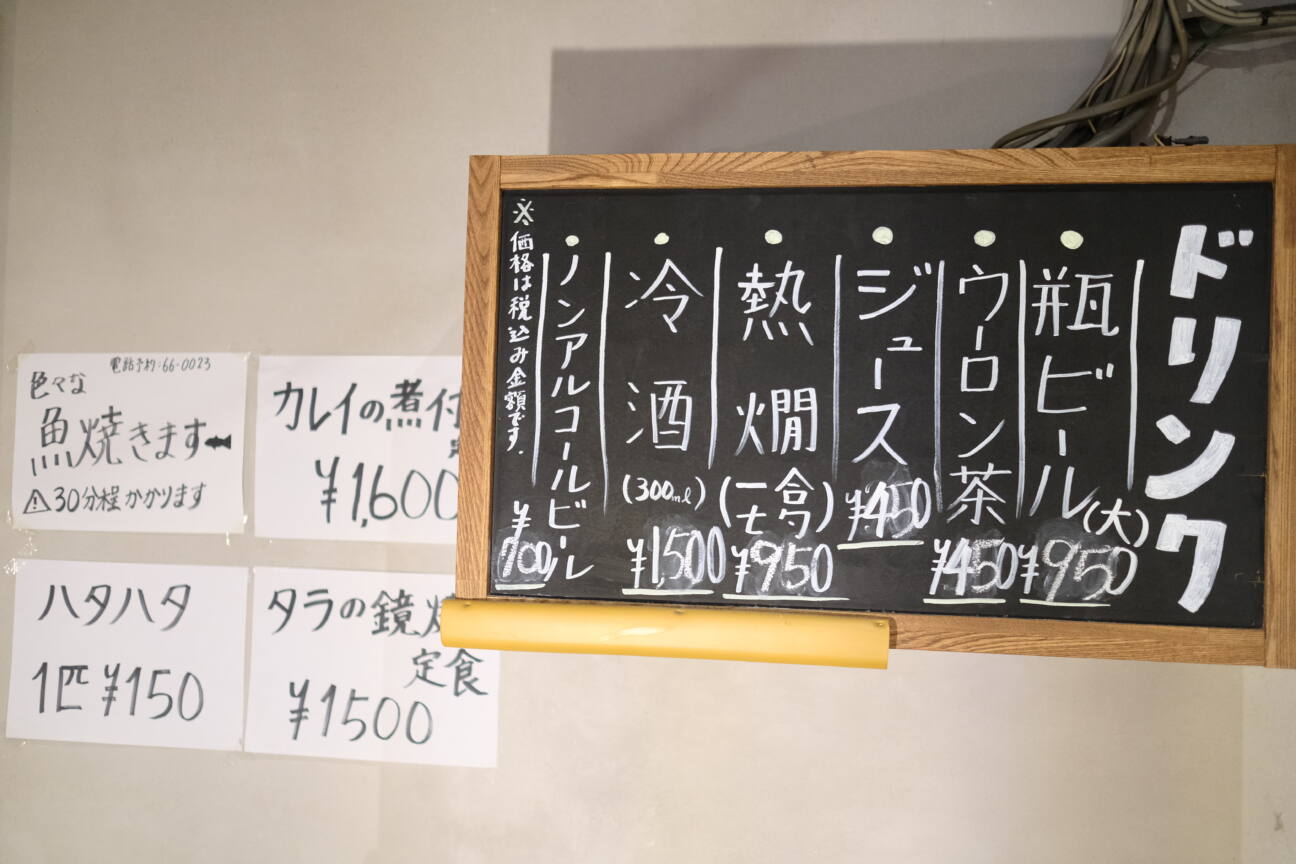 ドリンク
瓶ビール(大)
¥950
ウーロン茶
¥450
ジュース
¥450
熱燗(一合七勺)
¥950
冷酒(300ml)
¥1,500
ノンアルコールビール
¥700
※価格は税込み金額です.
電話予約:66-0023
色々な
魚焼きます
⚠30分程かかります
カレイの煮付
¥1,600
ハタハタ
1匹¥150
タラの鏡
定食
¥1500